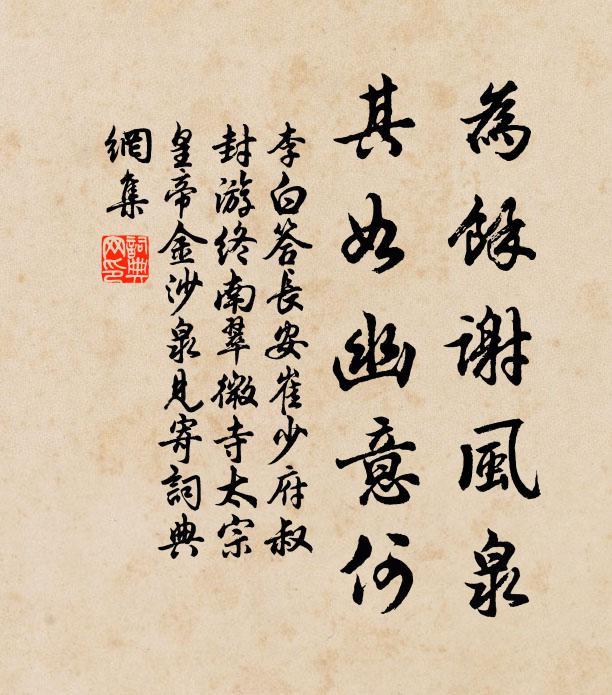 為餘謝風泉
其如幽意何
李白答長安崔少府叔
封游終南翠微寺太宗
皇帝金沙泉見寄詞典
網集
詞典
网印